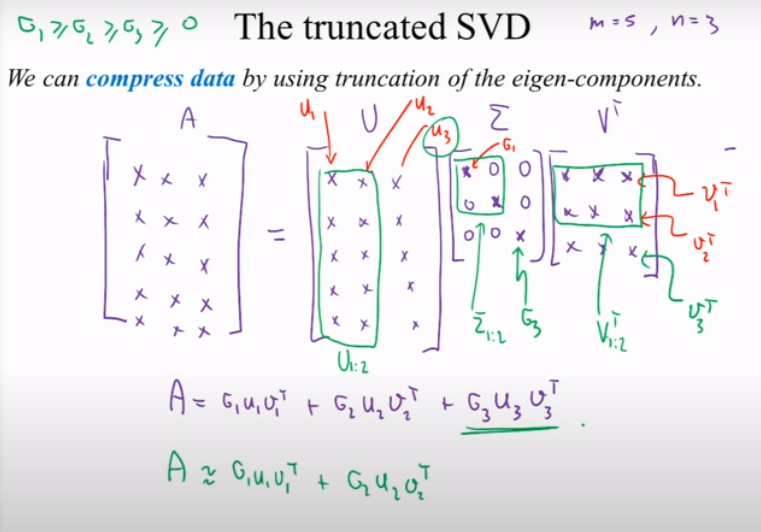 σ₁ ≥ σ₂ ≥ σ₃ ≥ 0 The truncated SVD m = 5 , n = 3
We can compress data by using truncation of the eigen-components.
A u₁ U u₂ u₃ Σ σ₁ Vᵀ
x x x = x x x x 0 0 x x x v₁ᵀ
x x x x x x 0 x 0 x x x v₂ᵀ
x x x x x x 0 0 x x x x v₃ᵀ
x x x x x x
x x x x x x
U₁:₂ Σ₁:₂ σ₃ Vᵀ₁:₂
A = σ₁u₁v₁ᵀ + σ₂u₂v₂ᵀ + σ₃u₃v₃ᵀ .
A ≈ σ₁u₁v₁ᵀ + σ₂u₂v₂ᵀ